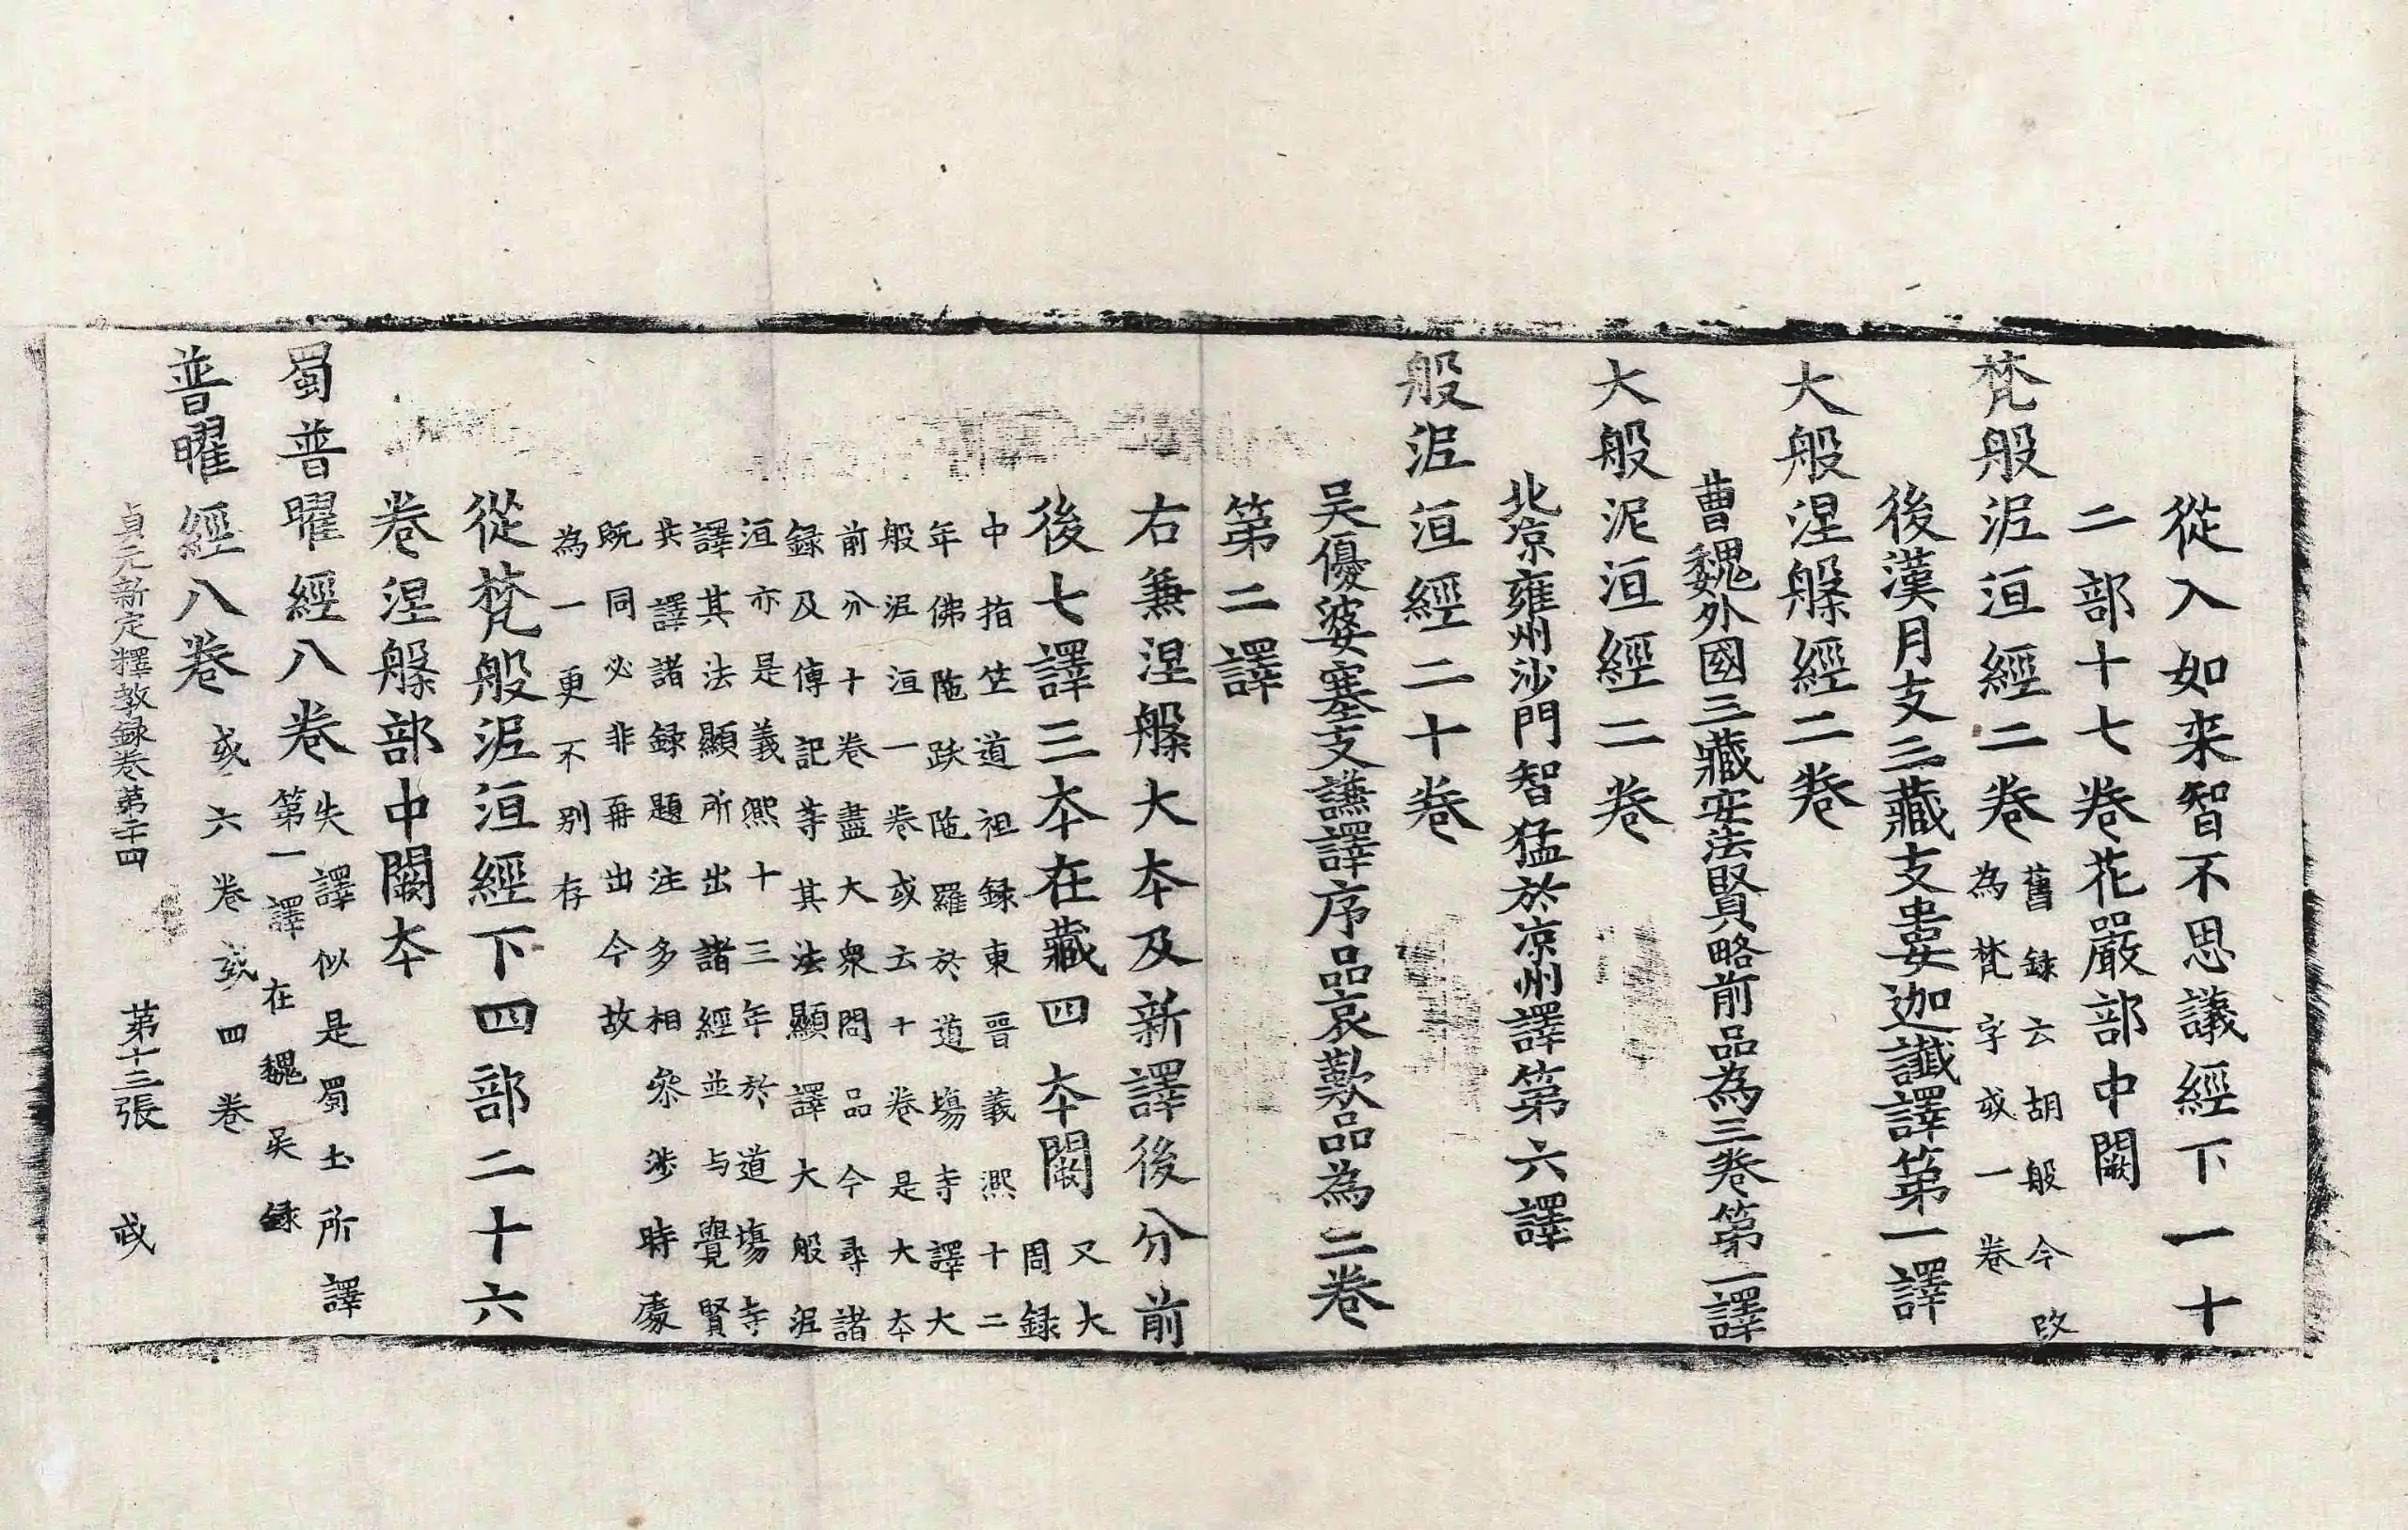 從入如来智不思議經下一十
二部十七卷花嚴部中闕
梵般泥洹經二卷舊録云胡般今改
為梵字或一卷
後漢月支三藏支婁迦讖譯第一譯
大般涅槃經二卷
曹魏外國三藏安法賢略前品為三卷第二譯
大般泥洹經二卷
北凉雍州沙門智猛於凉州譯第六譯
般泥洹經二十卷
吴優婆塞支謙譯序品哀歎品為二卷
第二譯
右兼涅槃大本及新譯後分前
後七譯三本在藏四本闕又大
周録
中指竺道祖録東晋義熈十二
年佛陁跋陁羅於道場寺譯大
般泥洹一卷或云十卷是大本
前分十卷盡大衆問品今尋諸
録及傳記等其法顯譯大般泥
洹亦是義熈十三年於道場寺
譯其法顯所出諸經並与覺賢
共譯諸録題注多相叅渉時處
既同必非再出今故
為一更不别存
從梵般泥洹經下四部二十六
卷涅槃部中闕本
蜀普曜經八卷失譯似是蜀土所譯
第一譯在魏吴録
普曜經八卷或六卷或四卷
貞元新定釋教録卷第二十四 第十三張 或